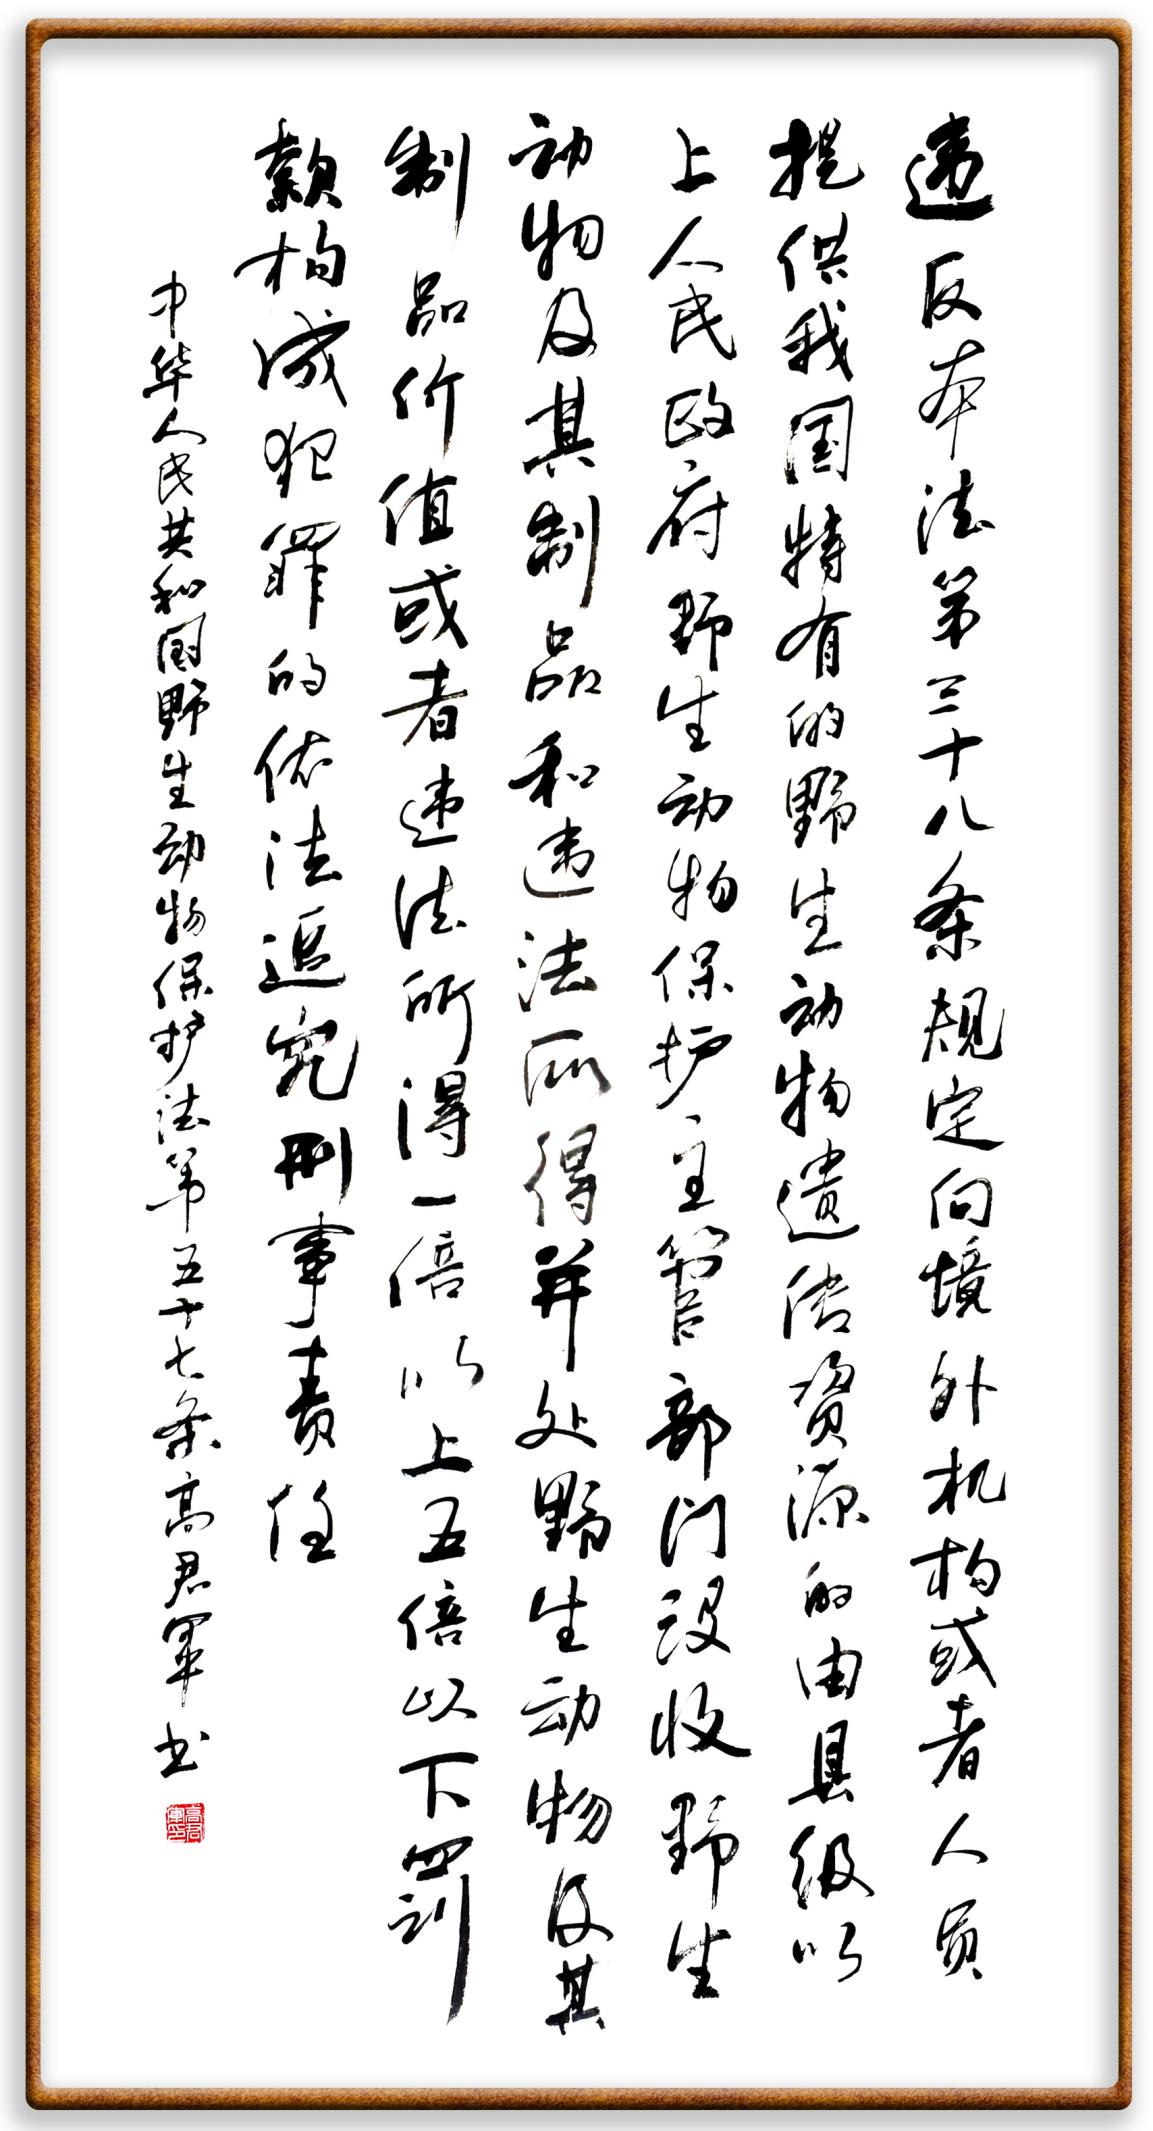 违反本法第三十八条规定向境外机构或者人员
提供我国特有的野生动物遗传资源的由县级以
上人民政府野生动物保护主管部门没收野生
动物及其制品和违法所得并处野生动物及其
制品价值或者违法所得一倍以上五倍以下罚
款构成犯罪的依法追究刑事责任
中华人民共和国野生动物保护法第五十七条高君军书
高君军印